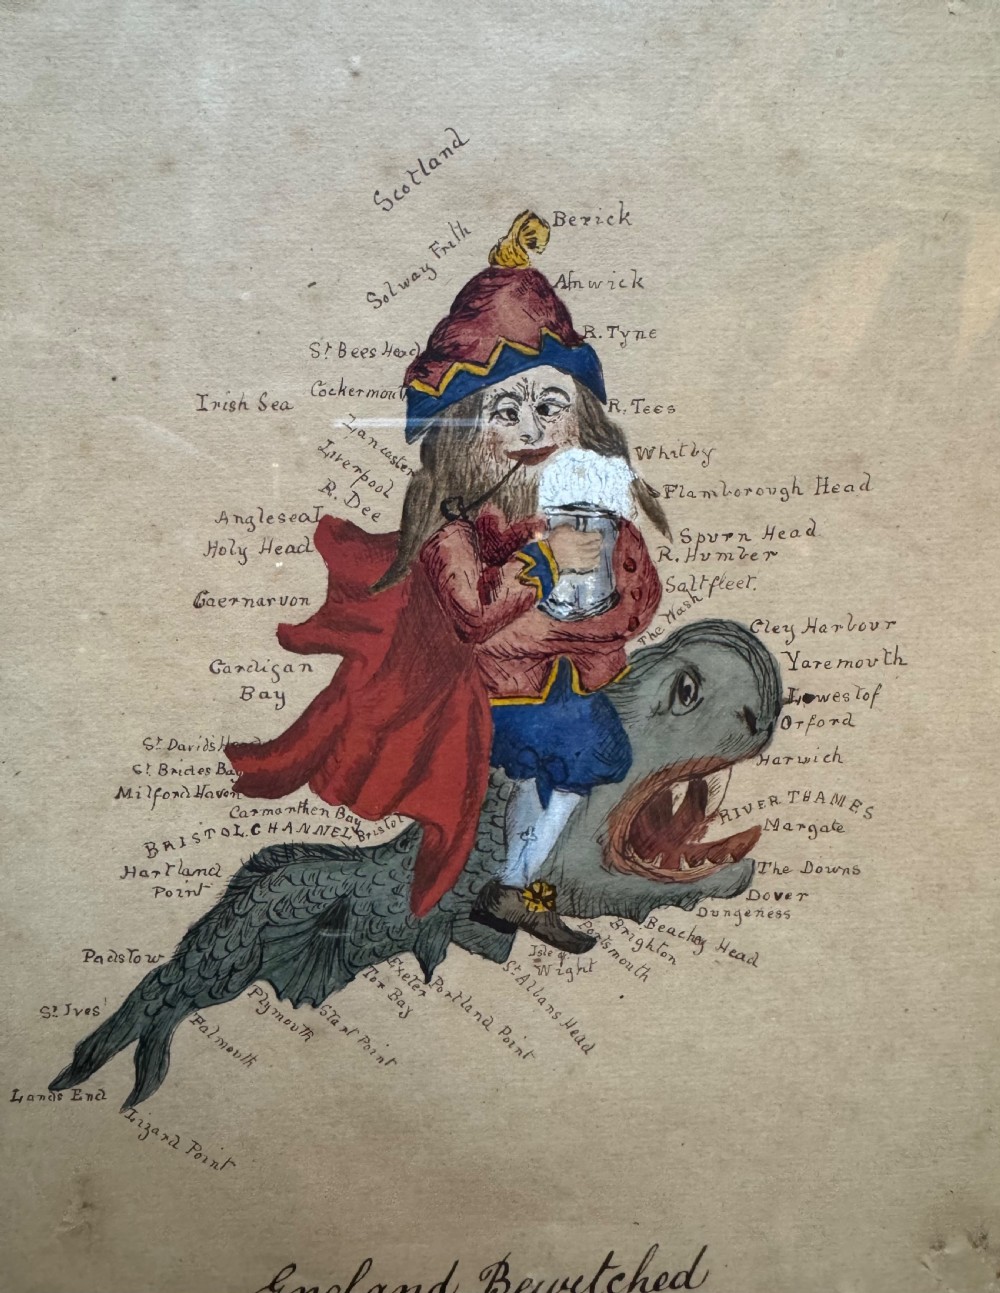 Scotland
Berick
Solway Frith
Alnwick
R. Tyne
St. Bees Head
Cockermout
Irish Sea
R. Tees
Lancaster
Liverpool
R. Dee
Whitby
Flamborough Head
Angleseal
Holy Head
Spurn Head
R. Humber
Saltfleet.
The Wash
Caernarvon
Cley Harbour
Yaremouth
Lowestof
Orford
Cardigan
Bay
Harwich
St. Davids Head
St. Brides Bay
Milford Haven
Carmanthen Bay
BRISTOL CHANNEL
Bristol
RIVER THAMES
Margate
Hartland
Point
The Downs
Dover
Dungeness
Beachey Head
Brighton
Portsmouth
Isle of
Wight
St. Albans Head
Portland Point
Exeter
Tor Bay
Start Point
Plymouth
Falmouth
Padstow
St. Ives'
Lands End
Lizard Point
England Bewitched